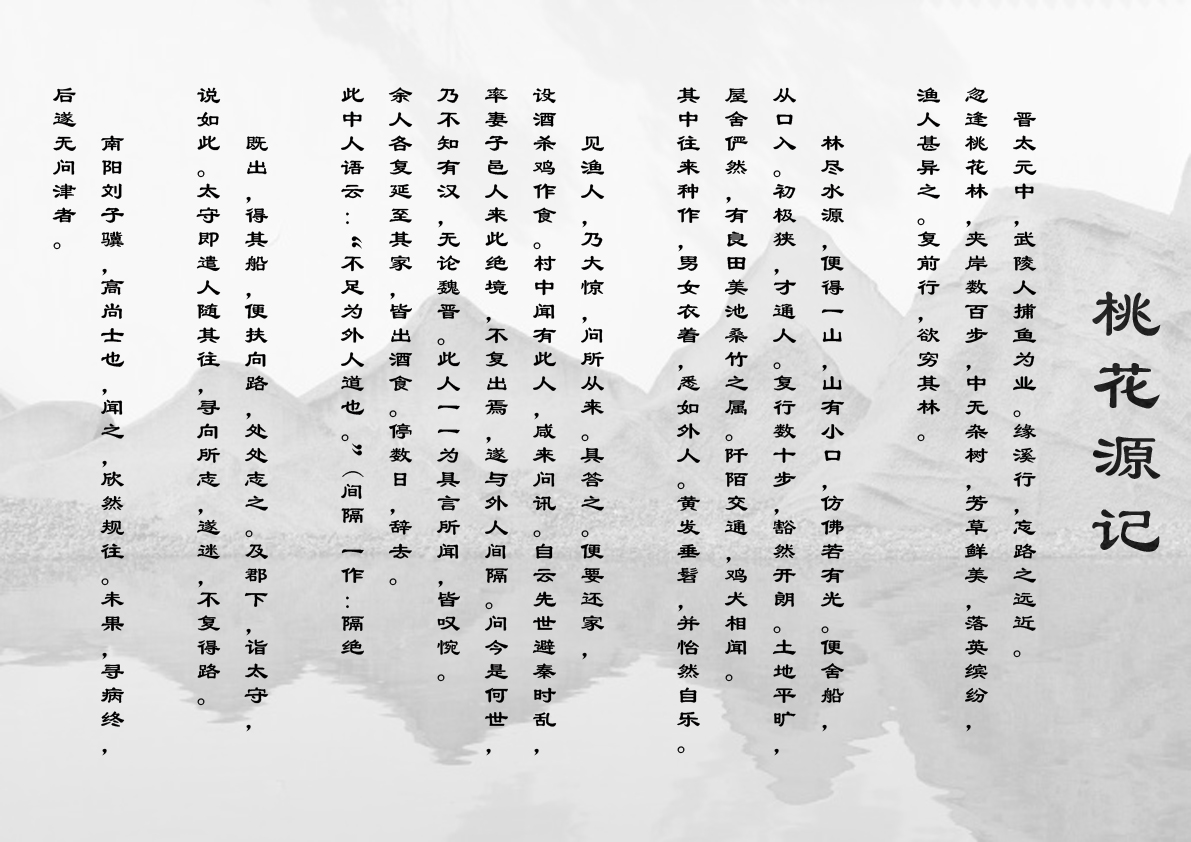 桃花源记
晋太元中，武陵人捕鱼为业。缘溪行，忘路之远近。
忽逢桃花林，夹岸数百步，中无杂树，芳草鲜美，落英缤纷，
渔人甚异之。复前行，欲穷其林。
林尽水源，便得一山，山有小口，仿佛若有光。便舍船，
从口入。初极狭，才通人。复行数十步，豁然开朗。土地平旷，
屋舍俨然，有良田美池桑竹之属。阡陌交通，鸡犬相闻。
其中往来种作，男女衣着，悉如外人。黄发垂髫，并怡然自乐。
见渔人，乃大惊，问所从来。具答之。便要还家，
设酒杀鸡作食。村中闻有此人，咸来问讯。自云先世避秦时乱，
率妻子邑人来此绝境，不复出焉，遂与外人间隔。问今是何世，
乃不知有汉，无论魏晋。此人一一为具言所闻，皆叹惋。
余人各复延至其家，皆出酒食。停数日，辞去。
此中人语云：“不足为外人道也。”（间隔 一作：隔绝
既出，得其船，便扶向路，处处志之。及郡下，诣太守，
说如此。太守即遣人随其往，寻向所志，遂迷，不复得路。
南阳刘子骥，高尚士也，闻之，欣然规往。未果，寻病终，
后遂无问津者。